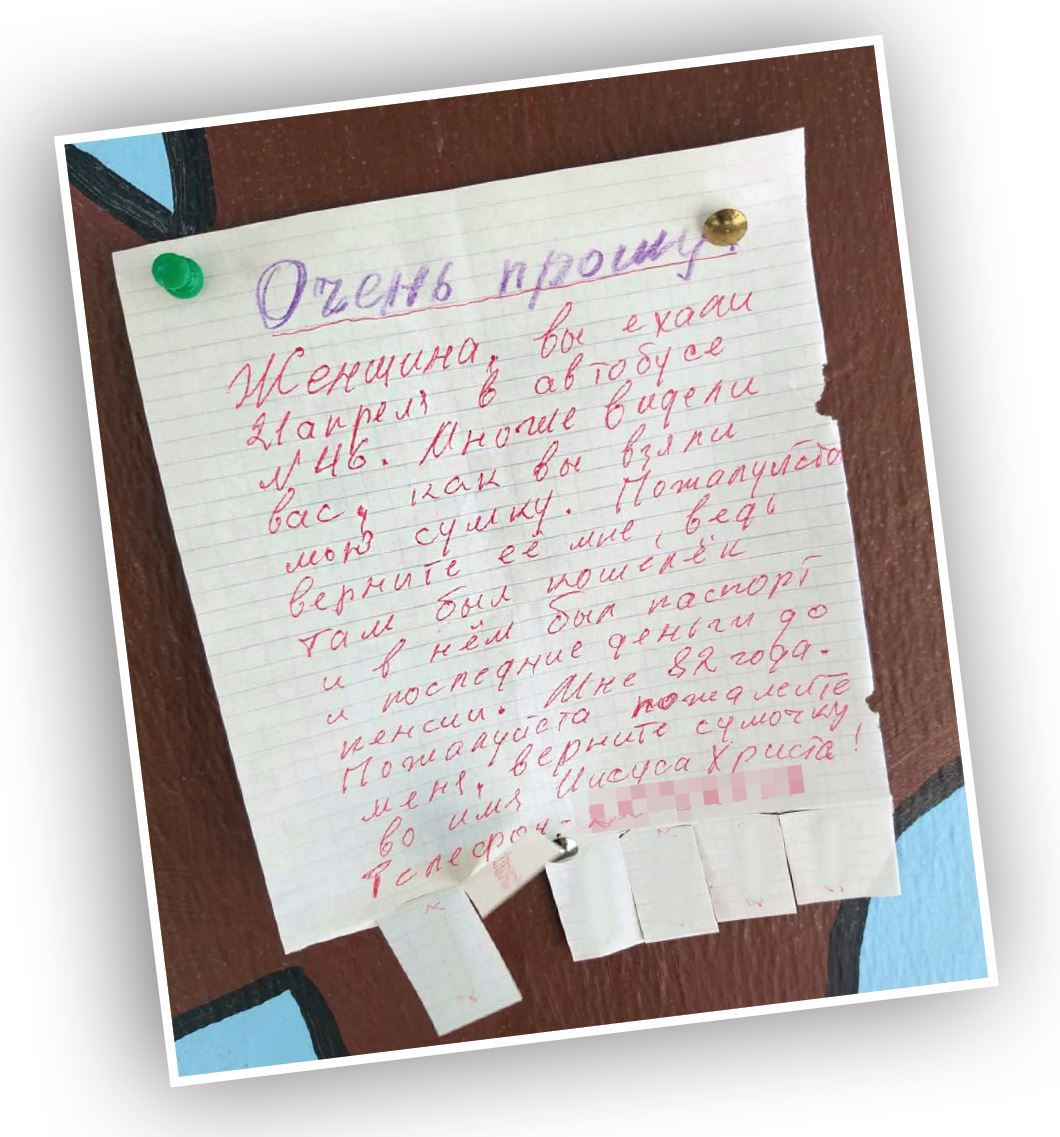 Очень прошу!
Женщина, вы ехали
21 апреля в автобусе
N 46. Многие видели
вас, как вы взяли
мою сумку. Пожалуйста
верните её мне, ведь
там был кошелёк
и в нём был паспорт
и последние деньги до
пенсии. Мне 82 года.
Пожалуйста пожалейте
меня, верните сумочку
во имя Иисуса Христа!
Телефон-